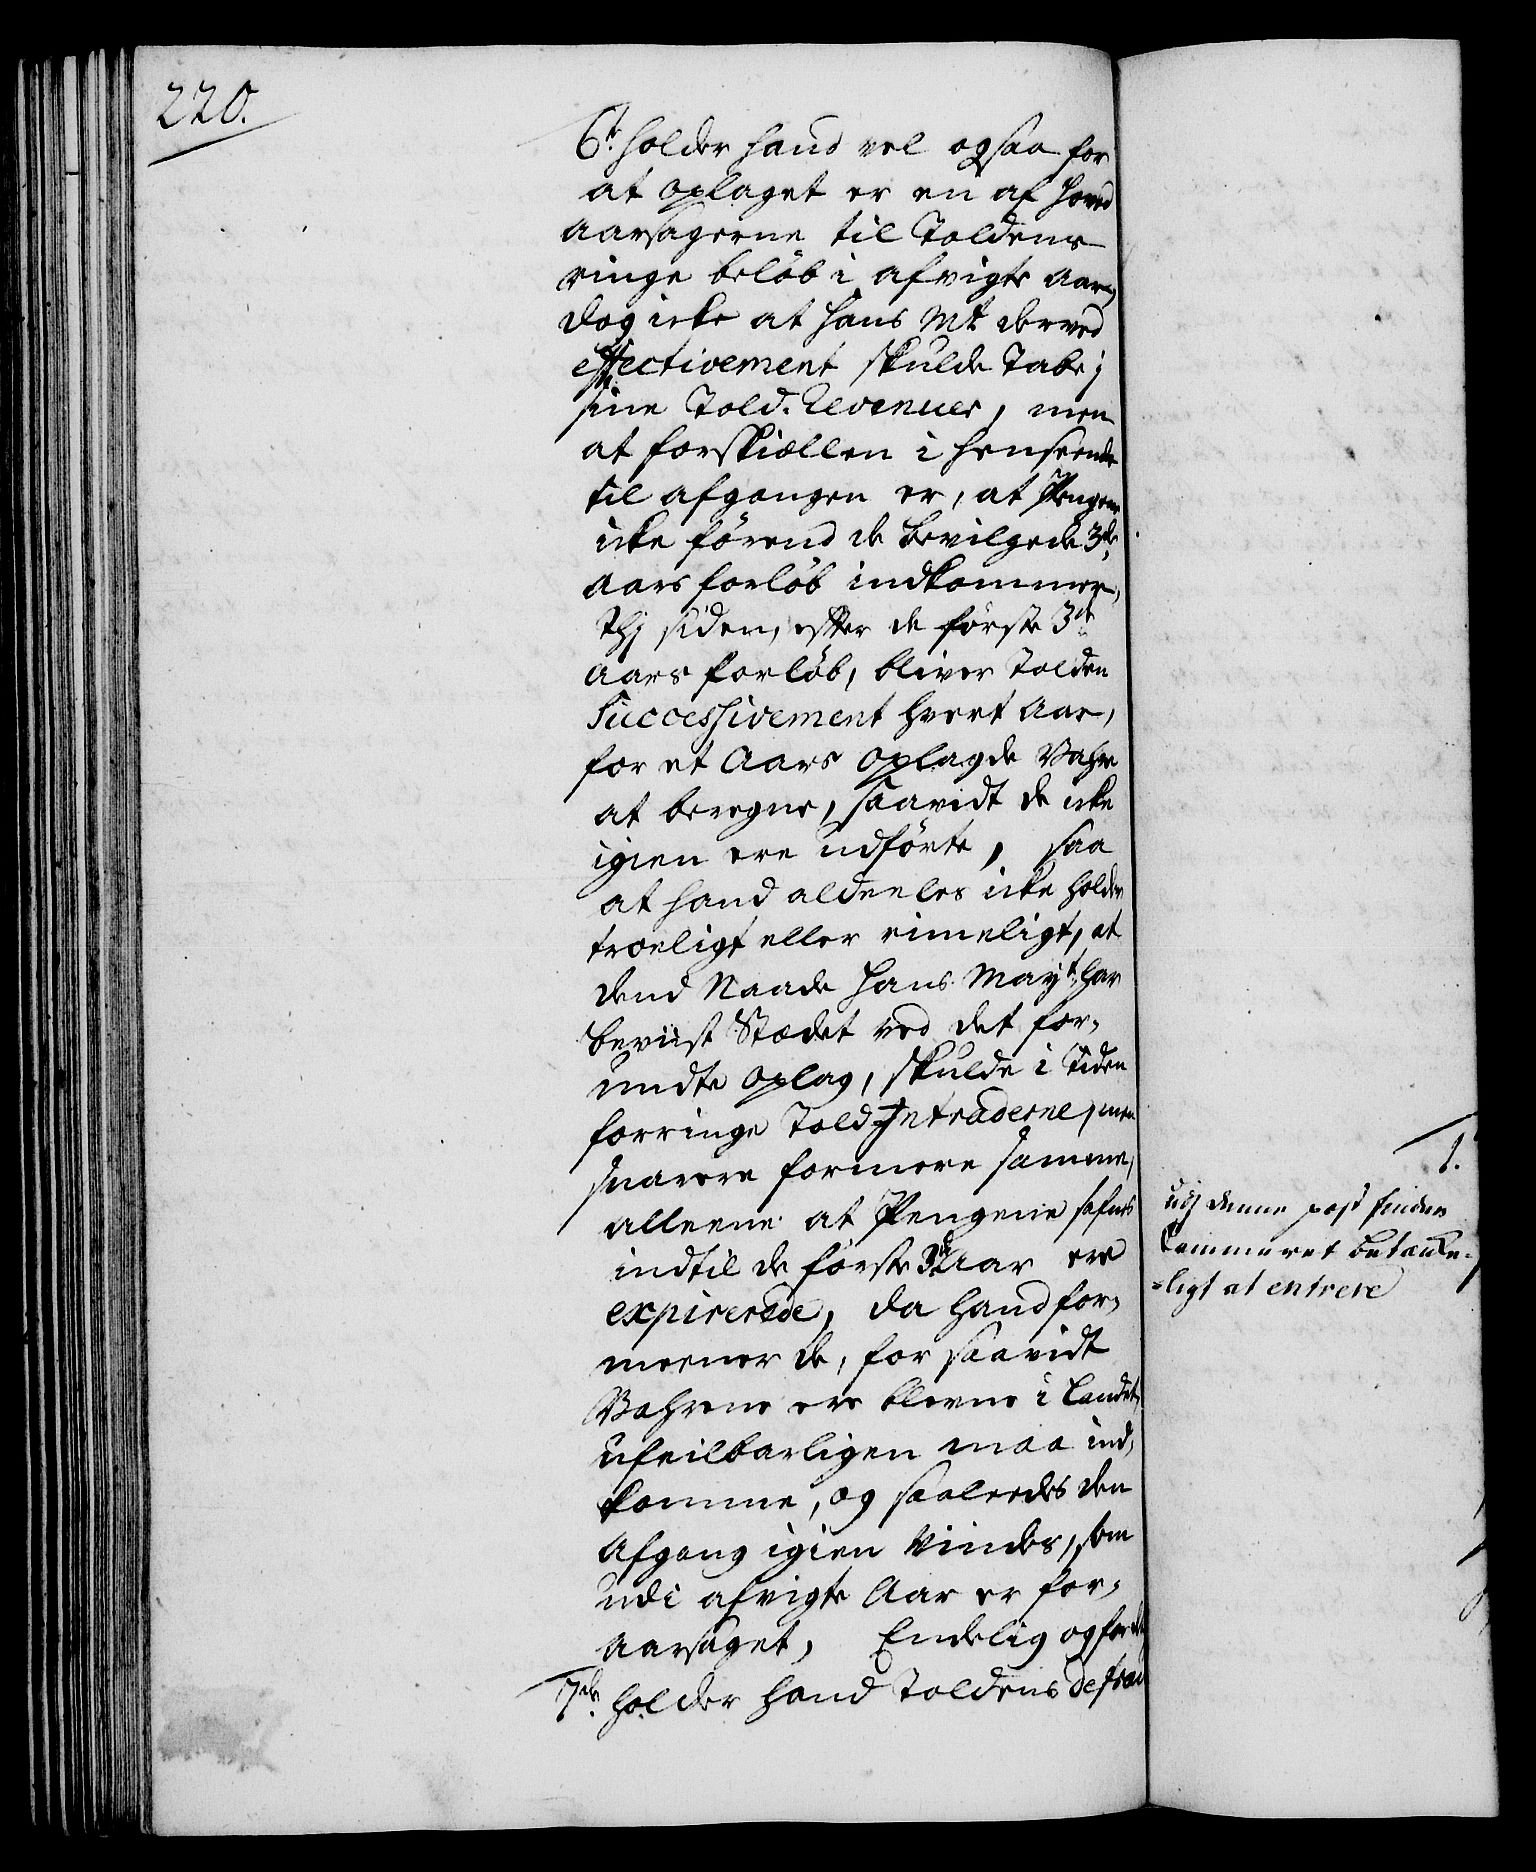 220.
6te holder hand vel ogsaa for
at oplaget er en af hoved
aarsagerne til Toldens
ringe beløb i afvigte aar,
dog icke at Hans Mt. derved
effectivement skulde Tabe i
sine Told-Revenuer, men
at forskiællen i henseende
til afgangen er, at Pengene
icke førend de bevilgede 3de
aars forløb indkommer,
thj siden, efter de første 3de
aars forløb, bliver Tolden
Successivement hvert aar,
for et Aars oplagde Vahre
at beregne, saavidt de icke
igien ere udførte, saa
at hand aldeeles icke holder
troeligt eller rimeligt, at
dend Naade Hans Mayt. har
beviist Stædet ved det for-
undte oplag, skulde i Tiden
forringe Told Intraderne, men
snarere formere samme,
alleene at Pengene hefves
indtil de første 3de Aar ere
expirerede, da hand for-
meener de, for saavidt
Vahrene ere blevne i Landet,
ufeilbarligen maa ind-
komme, og saaleedes den
afgang igien vindes, som
udi afvigte Aar er for-
aarsaget, Endelig og for det
7de holder hand Toldens defrau
1.
udj denne post finder
Cammeret betænke-
-ligt at entrere